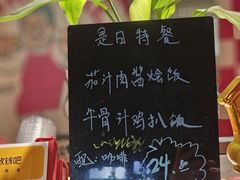 是日特餐
茄汁肉酱烩饭
牛骨汁鸡扒饭
配:咖啡
24.
收钱吧